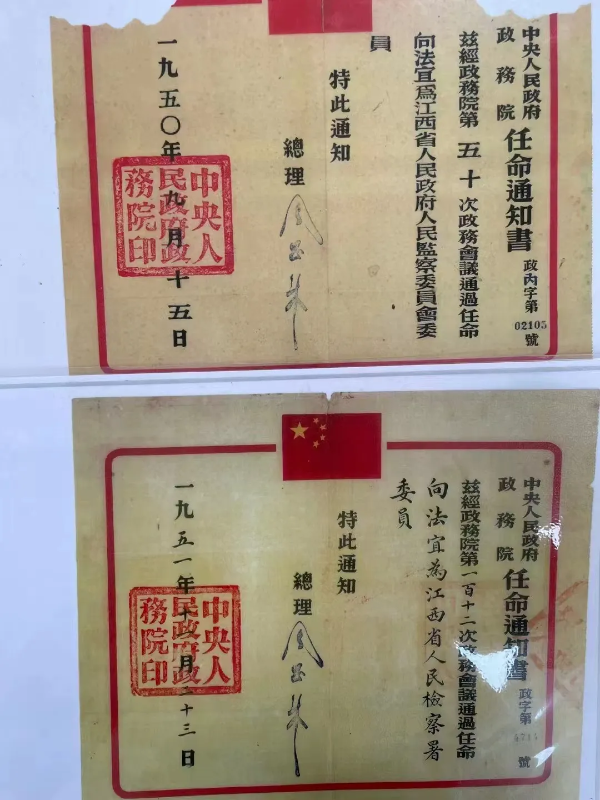 中央人民政府
政務院
任命通知書
政內字第02105號
茲經政務院第五十次政務會議通過任命
向法宜爲江西省人民政府人民監察委員會委
員
特此通知
總理 周恩來
一九五〇年九月十五日
中央人
民政府政
務院印
中央人民政府
政務院
任命通知書
政字第 號
茲經政務院第一百十二次政務會議通過任命
向法宜為江西省人民檢察署
委員
特此通知
總理 周恩來
一九五一年十一月二十三日
中央人
民政府政
務院印